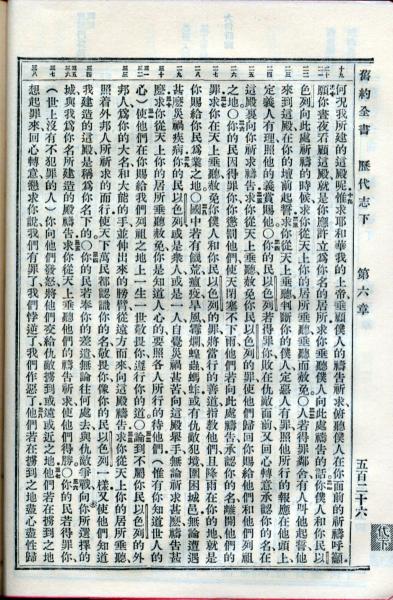 舊約全書　歷代志下　第六章　五百二十六
何況我所建的這殿呢惟求耶和華我的上帝垂顧僕人的禱告祈求俯聽僕人在你面前的祈禱呼籲
願你晝夜看顧這殿就是你應許立為你名的居所求你垂聽僕人向此處禱告的話你僕人和你民以
色列向此處祈禱的時候求你從天上你的居所垂聽垂聽而赦免〇人若得罪鄰舍有人叫他起誓他
來到這殿在你的壇前起誓求你從天上垂聽判斷你的僕人定惡人有罪照他所行的報應在他頭上
定義人有理照他的義賞賜他〇你的民以色列若得罪你敗在仇敵面前又回心轉意承認你的名在
這殿裏向你祈求禱告求你從天上垂聽赦免你民以色列的罪使他們歸回你賜給他們和他們列祖
之地〇你的民因得罪你你懲罰他們使天閉塞不下雨他們若向此處禱告承認你的名離開他們的
罪求你在天上垂聽赦免你僕人和你民以色列的罪將當行的善道指教他們且降雨在你的地就是
你賜給你民為業之地〇國中若有饑荒瘟疫旱風霉爛蝗蟲螞蚱或有仇敵犯境圍困城邑無論遭遇
甚麼災禍疾病你的民以色列或是眾人或是一人自覺災禍甚苦向這殿舉手無論祈求甚麼禱告甚
麼求你從天上你的居所垂聽赦免你是知道人心的要照各人所行的待他們(惟有你知道世人的
心)使他們在你賜給我們列祖之地上一生一世敬畏你遵行你的道〇論到不屬你民以色列的外
邦人為你的大名和大能的手並伸出來的膀臂從遠方而來向這殿禱告求你從天上你的居所垂聽
照着外邦人所祈求的而行使天下萬民都認識你的名敬畏你像你的民以色列一樣又使他們知道
我建造的這殿是稱為你名下的〇你的民若奉你的差遣無論往何處去與仇敵爭戰向你所選擇的
城與我為你名所建造的殿禱告求你從天上垂聽他們的禱告祈求使他們得勝〇你的民若得罪你
(世上沒有不犯罪的人)你向他們發怒將他們交給仇敵擄到或遠或近之地他們若在擄到之地
想起罪來回心轉意懇求你說我們有罪了我們悖逆了我們作惡了他們若在擄到之地盡心盡性歸